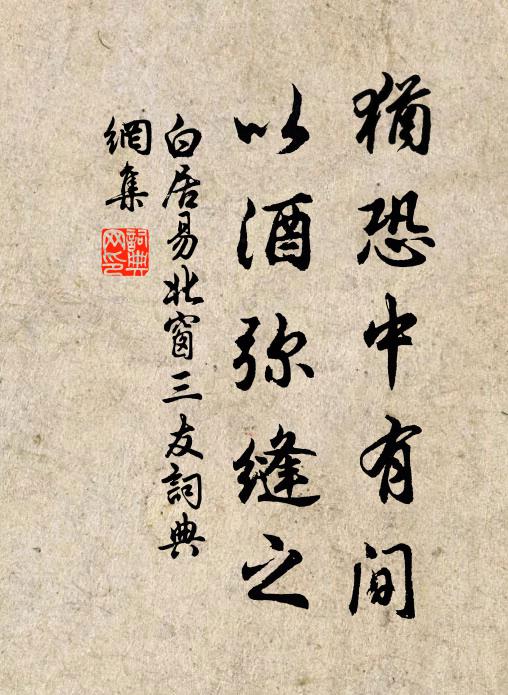 猶恐中有間
以酒弥縫之
白居易北窗三友詞典
網集
詞典
网印